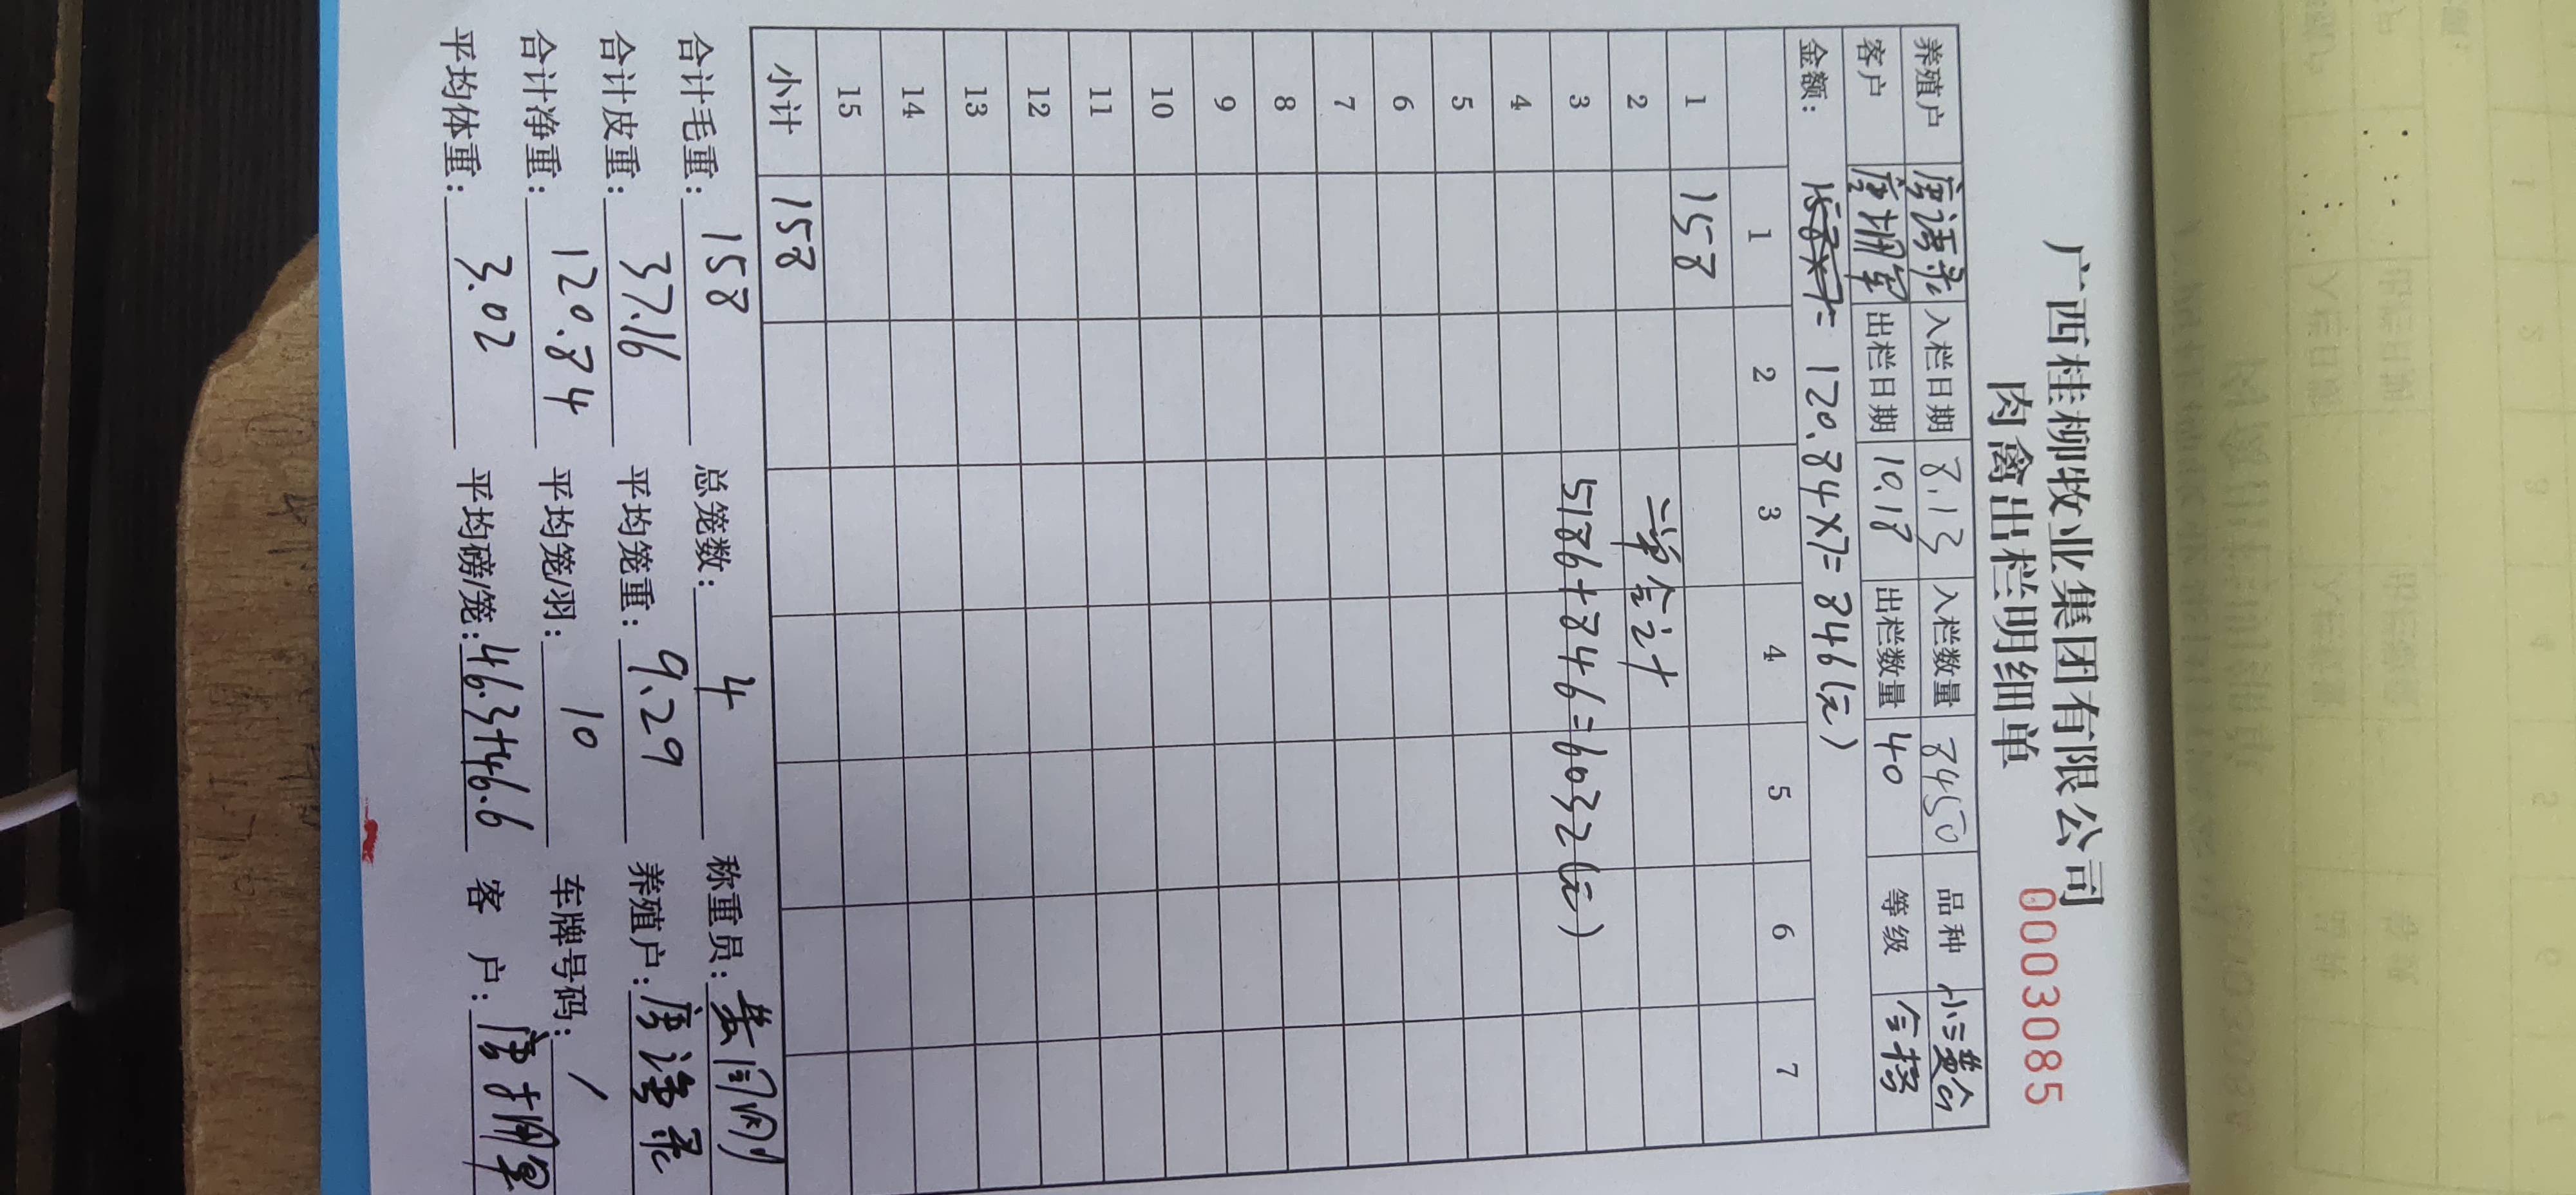 广西桂柳牧业集团有限公司
肉禽出栏明细单 00030085
养殖户 唐 入栏日期 8.13 入栏数量 8450 品种 小三黄鸽
客户 唐 出栏日期 10.18 出栏数量 40 等级 合格
金额: 120.84×7=846(元)
1 2 3 4 5 6 7
1 158
2 二单合计
3 51866+8846=60322(元)
4
5
6
7
8
9
10
11
12
13
14
15
小计 158
合计毛重: 158 总笼数: 4 称重员:
合计皮重: 37.16 平均笼重: 9.29 养殖户: 唐
合计净重: 120.84 平均笼/羽: 10 车牌号码: /
平均体重: 3.02 平均磅/笼: 46.3+46.6 客 户: 唐